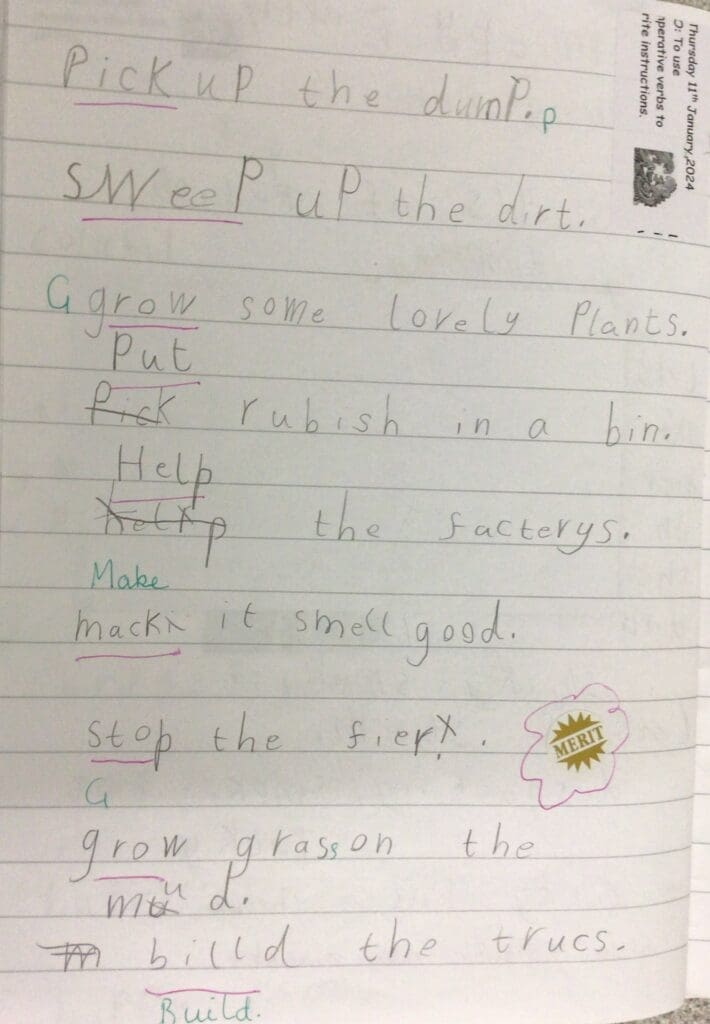 Thursday 11th January, 2024
O: To use
perative verbs to
rite instructions.
Pick up the dump. p
sweep up the dirt.
G grow some lovely plants.
Put
Pick rubish in a bin.
Help
the facterys.
Make
it smell good.
MERIT
stop the fier.
G
grow grass on the
mud.
billd the trucs.
Build.